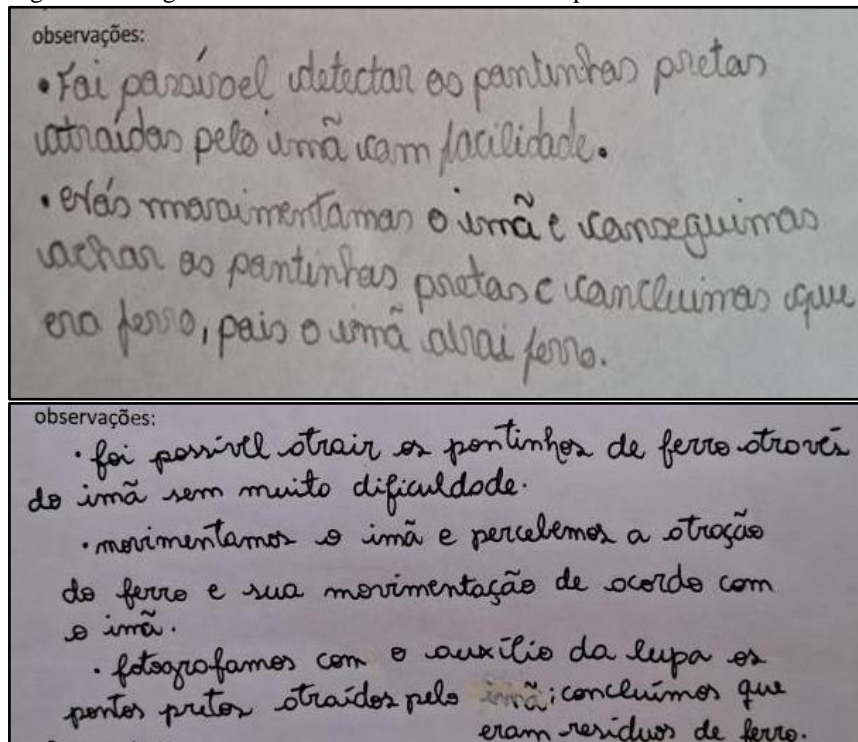 observações:
• Foi possível detectar os pontinhos pretos
atraídos pelo imã com facilidade.
• Nós movimentamos o imã e conseguimos
achar os pontinhos pretos e concluimos que
era ferro, pois o imã atrai ferro.
observações:
• foi possível atrair os pontinhos de ferro através
do imã sem muito dificuldade.
• movimentamos o imã e percebemos a atração
do ferro e sua movimentação de acordo com
o imã.
• fotografamos com o auxílio da lupa os
pontos pretos atraídos pelo imã; concluímos que
eram resíduos de ferro.